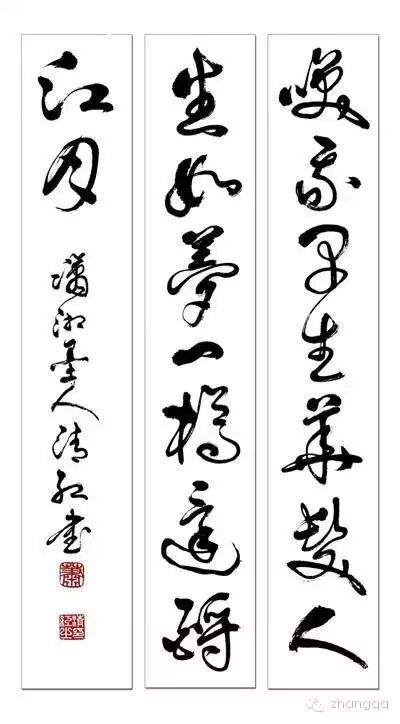 咲我早生華髮人
生如夢一樽還酹
江月
瀟湘墨人清紅書
蕭
zhangqq